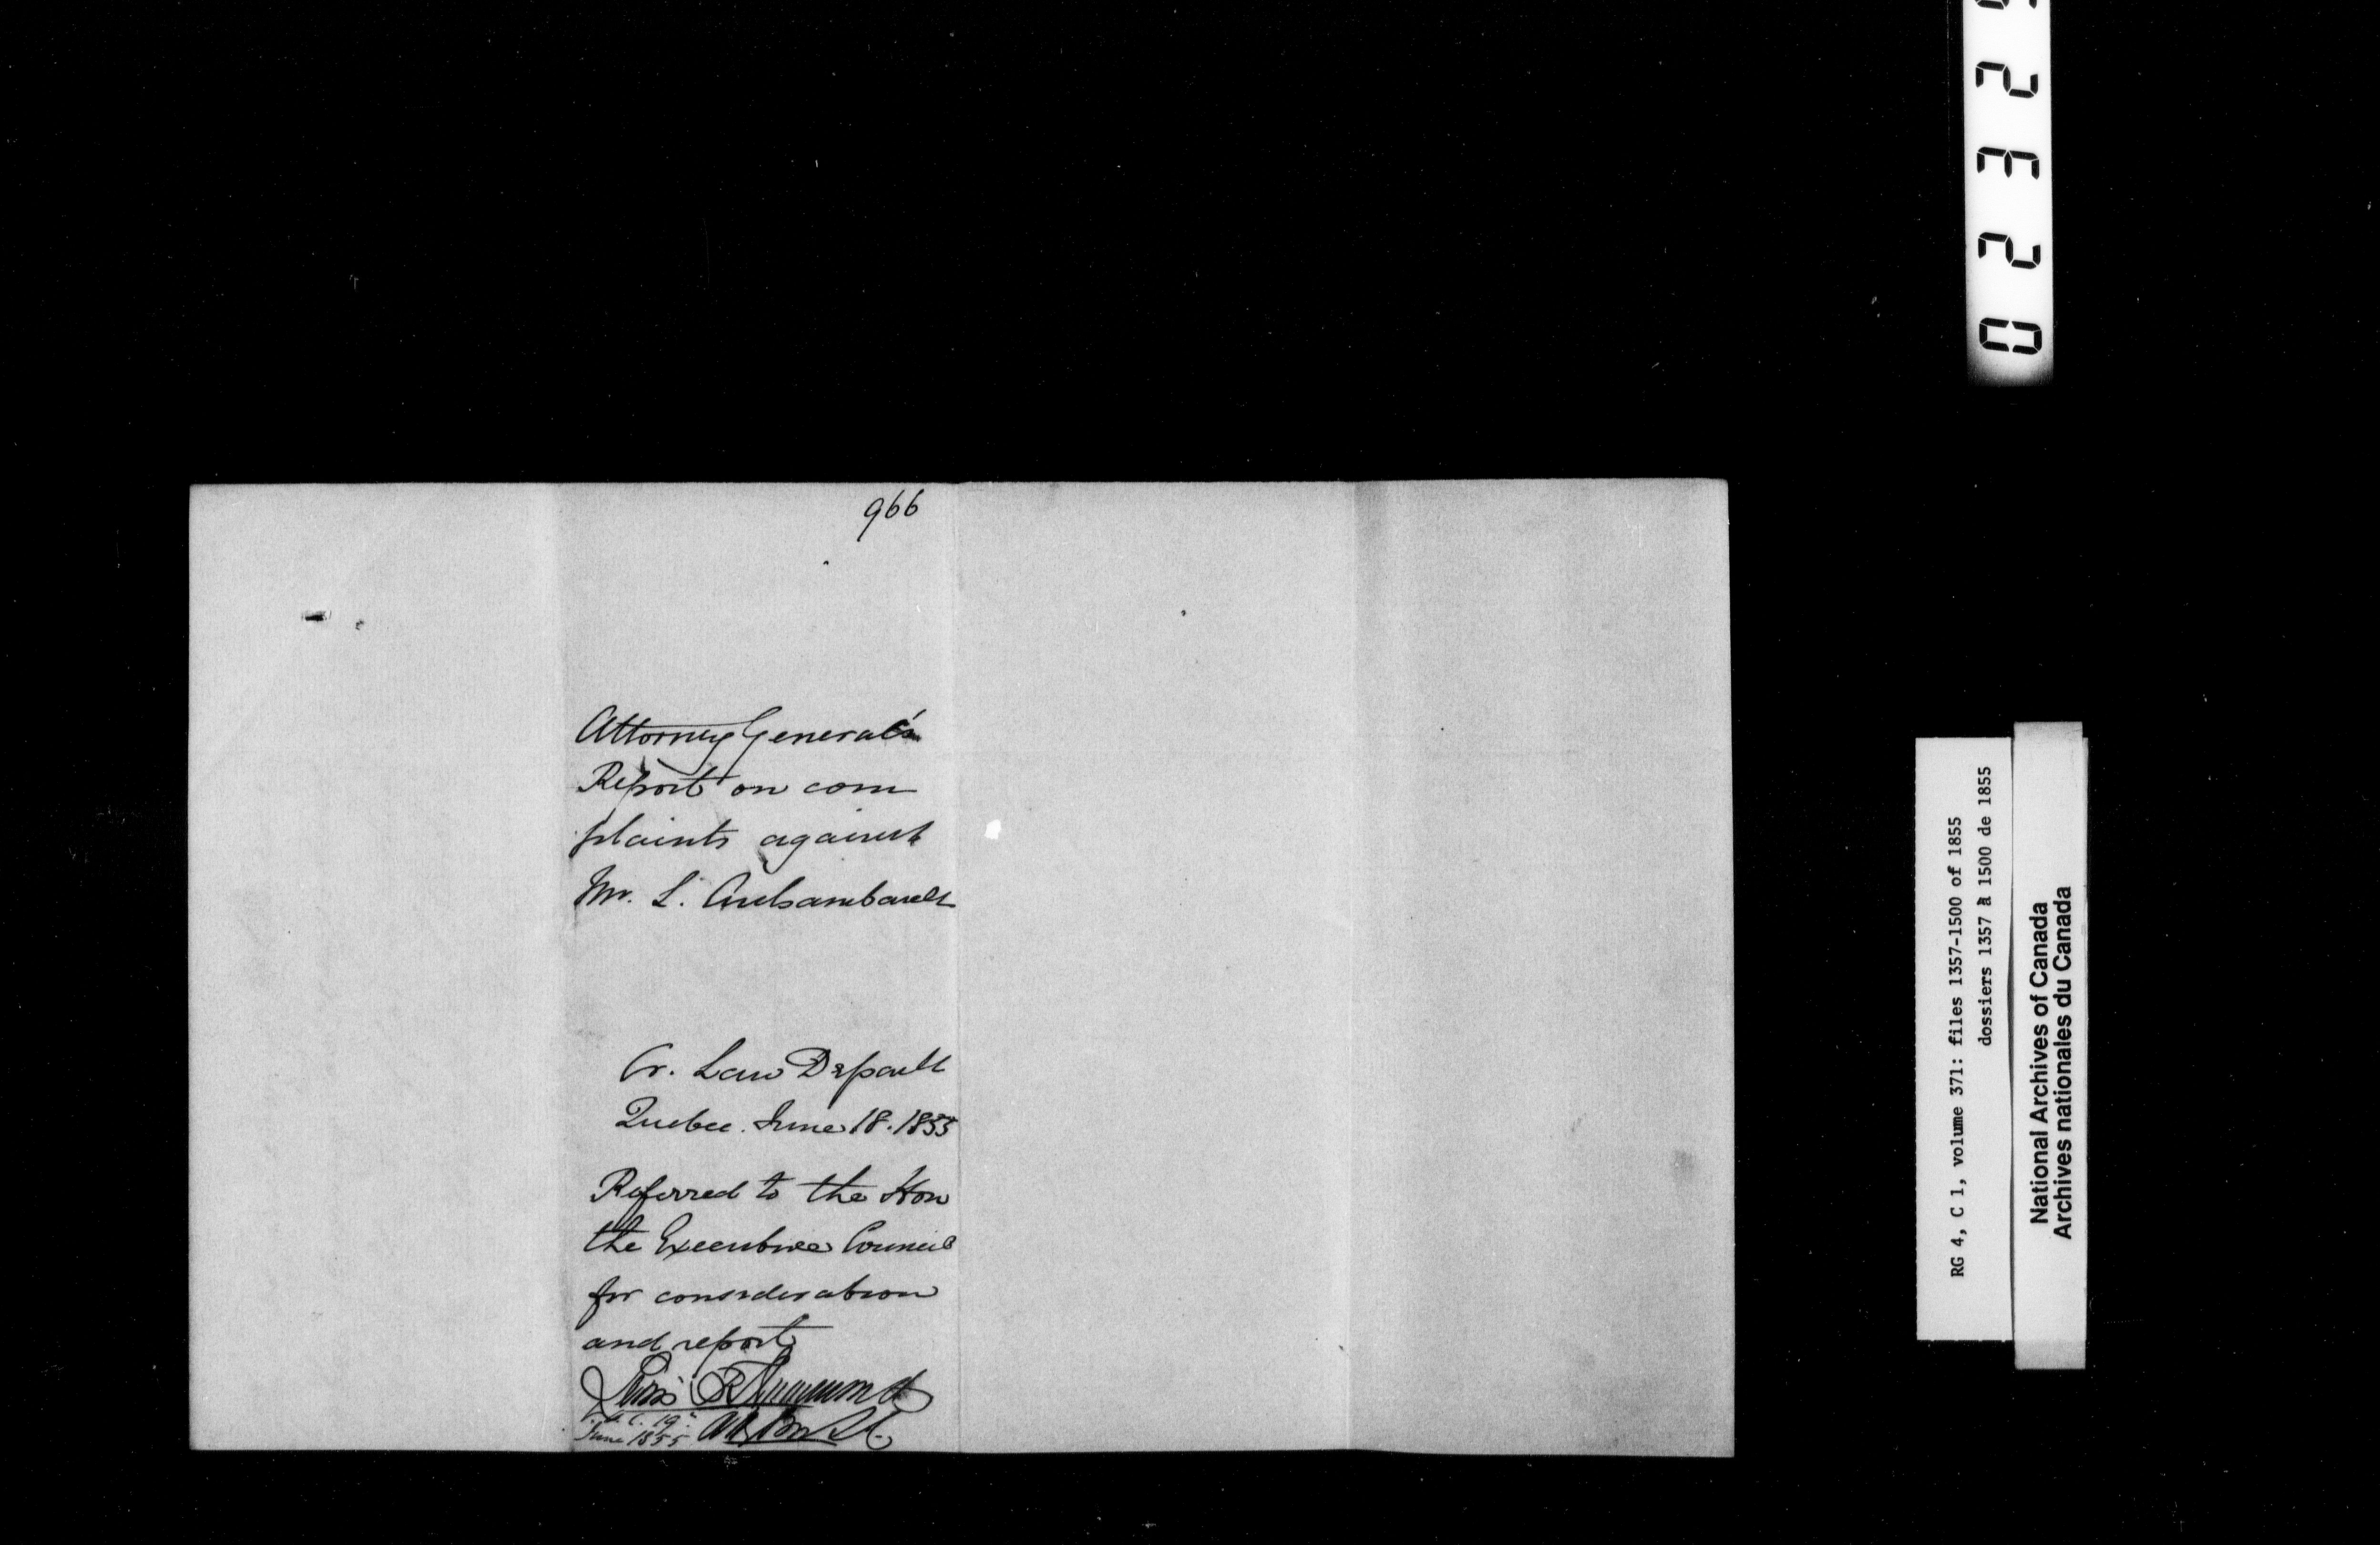 966
Attorney General's
Report on com
plaints against
Mr. L. Archambault
Cr. Law Depart
Quebec. June 18. 1855
Referred to the Hon
the Executive Council
for consideration
and report
Lewis Drummond
19th
June 1855
0 2 3 2
RG 4, C 1, volume 371: files 1357-1500 of 1855
dossiers 1357 à 1500 de 1855
National Archives of Canada
Archives nationales du Canada